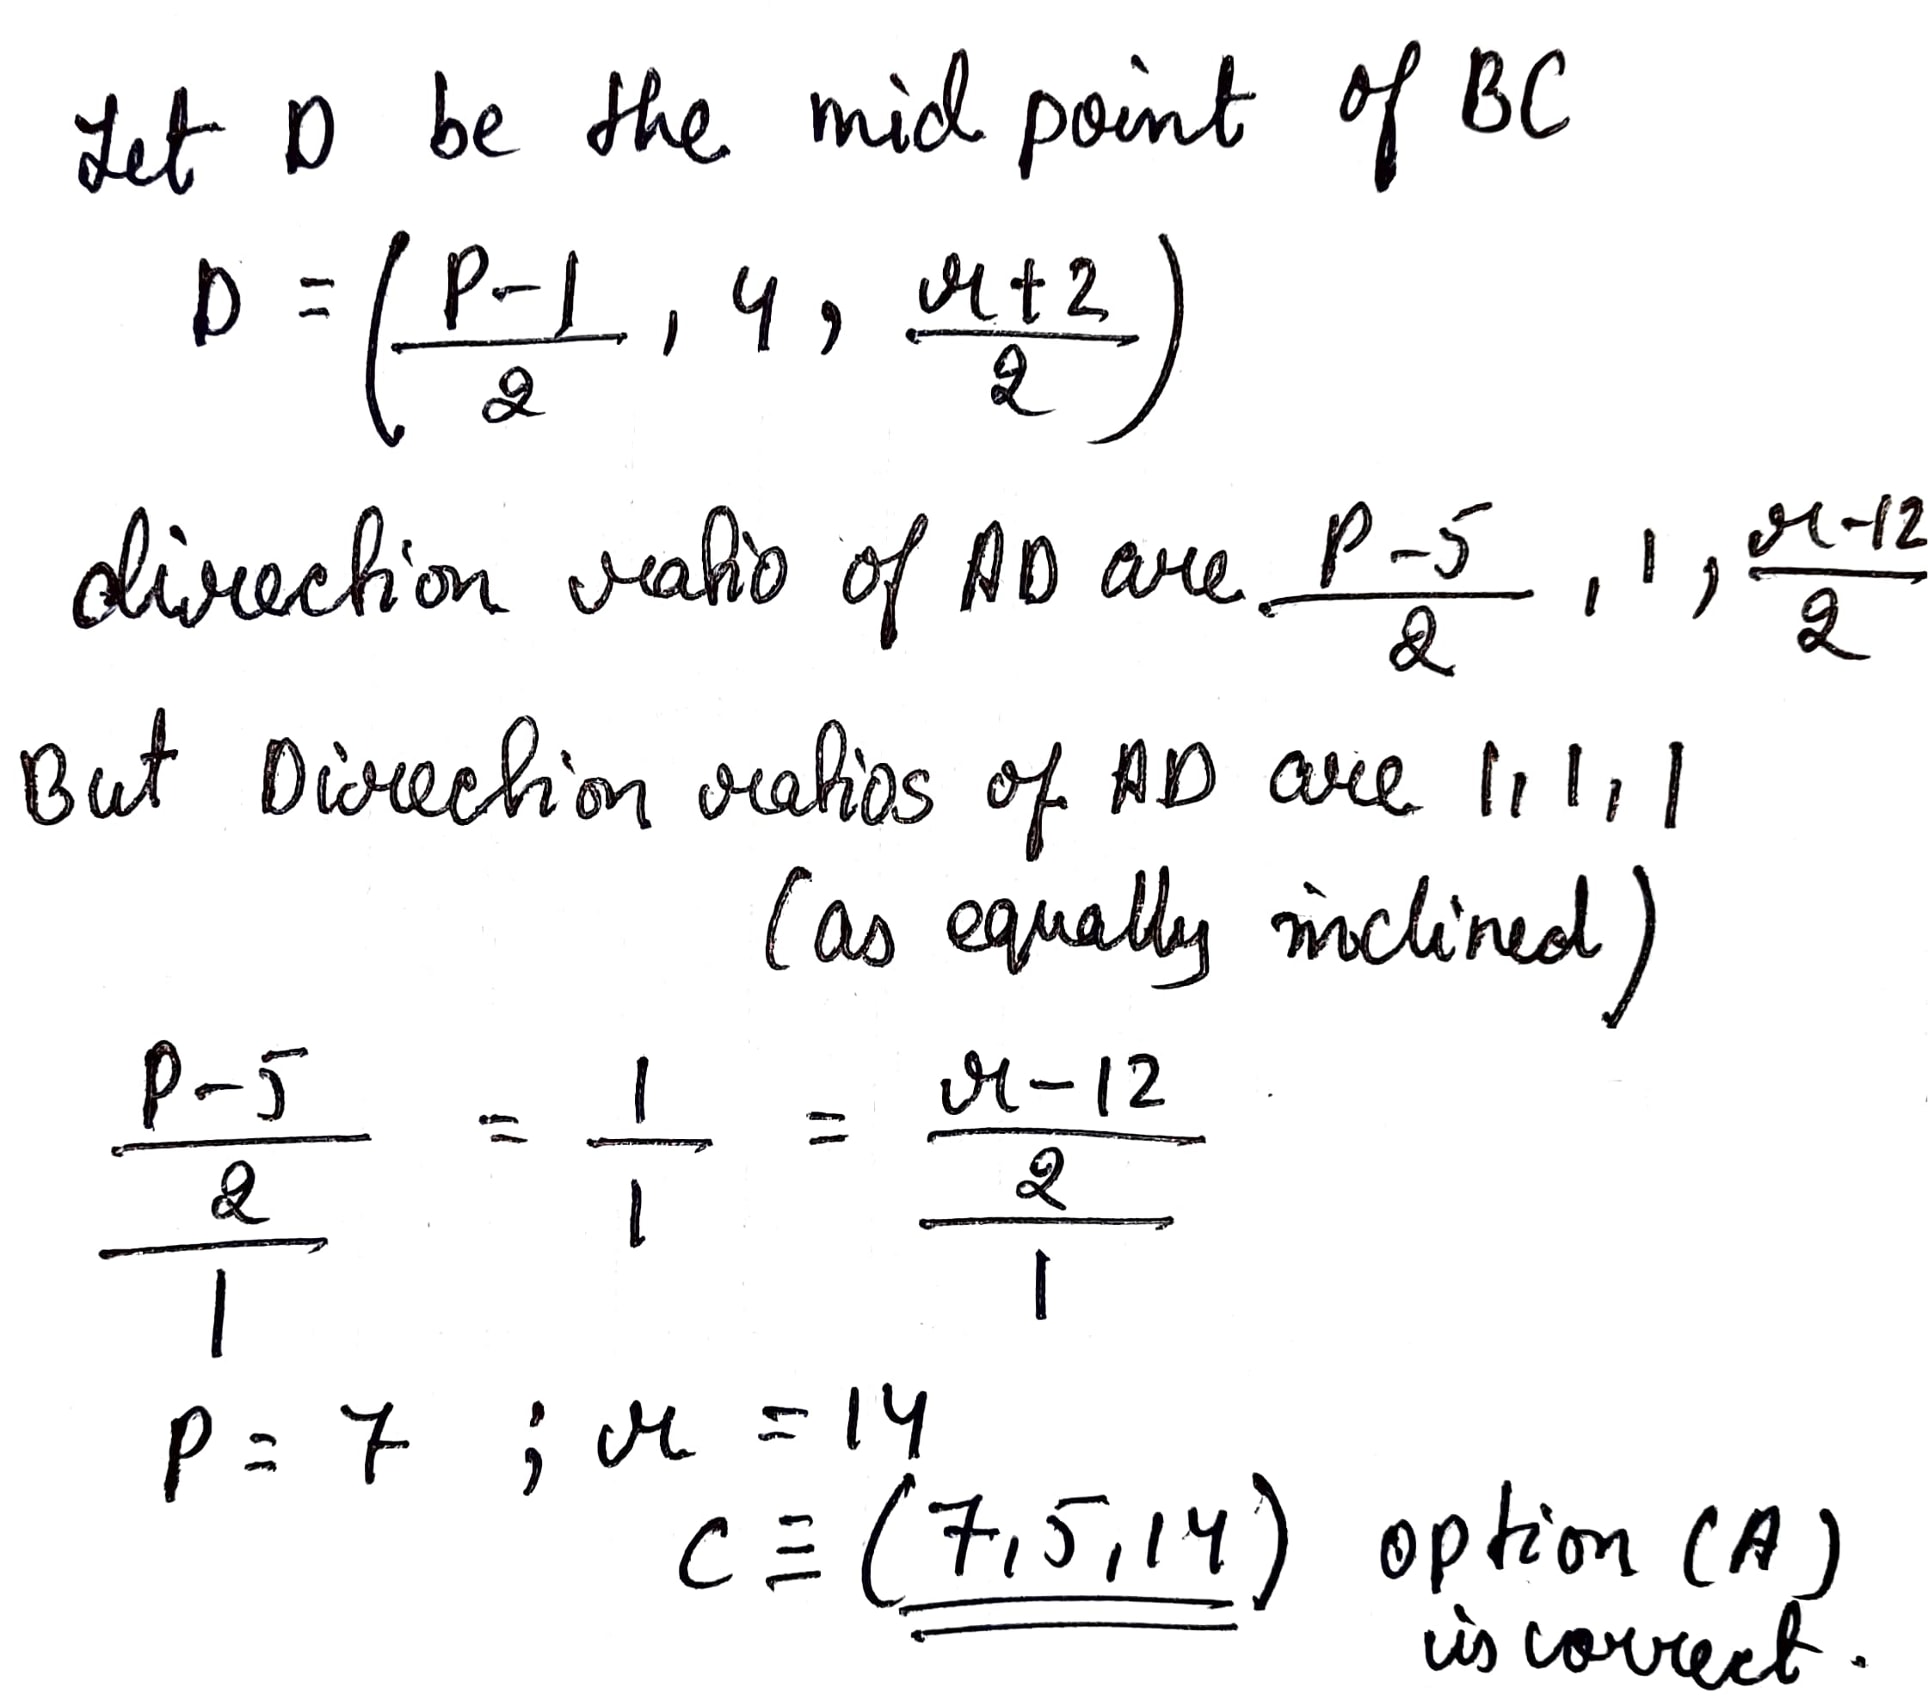 Let D be the mid point of BC
D = ( P-1/2 , 4 , r+2/2 )
direction ratio of AD are P-5/2 , 1 , r-12/2
But Direction ratios of AD are 1, 1, 1
(as equally inclined)
P-5/2/1 = 1/1 = r-12/2/1
P = 7 ; r = 14
C ≡ (7,5,14) option (A)
is correct.